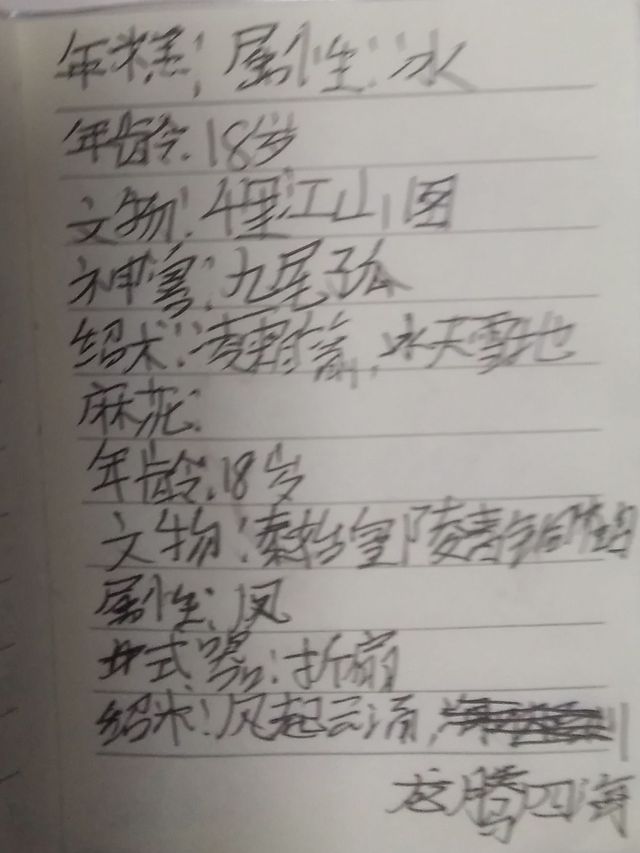 年糕：属性：水
年龄：18岁
文物：千里江山图
神兽：九尾狐
绍术：冰天雪地
麻花：
年龄：18岁
文物：秦始皇陵青铜
属性：风
武器：折扇
绍术：风起云涌，
龙腾四海